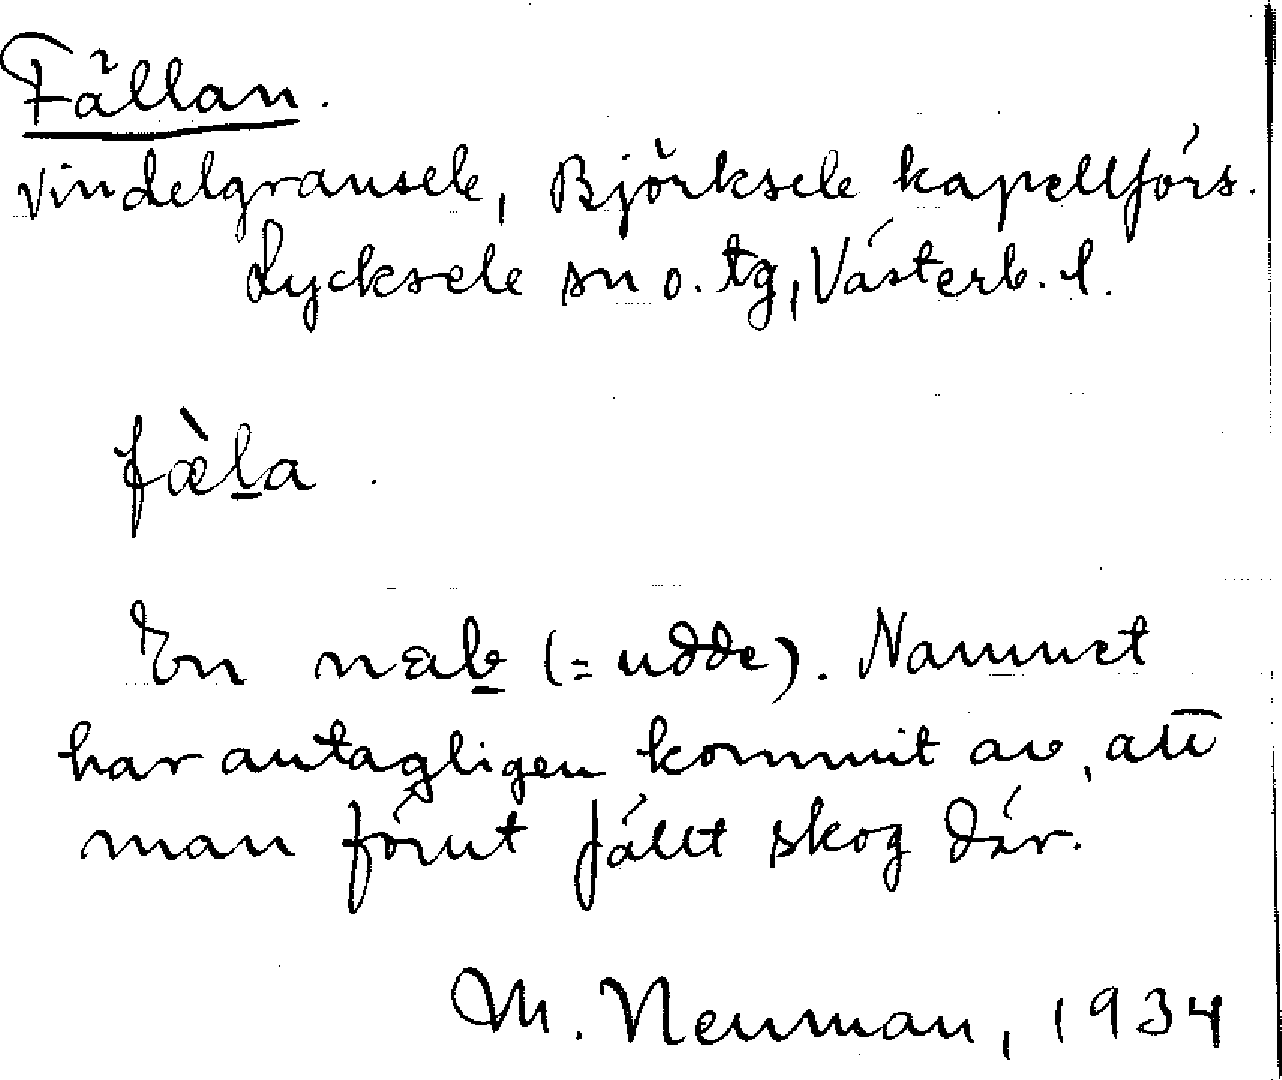 Fällan.
Vindelgransele, Björksele kapellförs.
Lycksele sn o. tg, Västerb. l.
fæ̀l̲a.
En næb̲ (= udde). Namnet
har antagligen kommit av, att
man förut fällt skog där.
M. Neuman, 1934